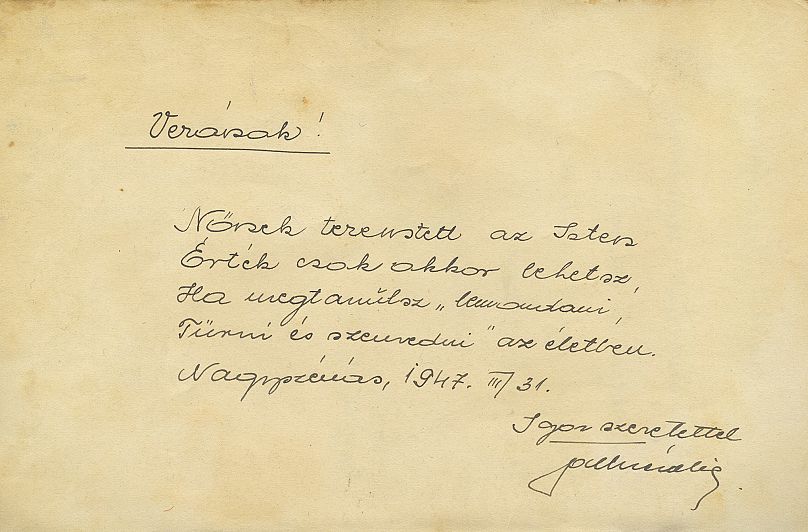 Verának!
Nőnek teremtett az Isten
Érték csak akkor lehetsz,
Ha megtanulsz „lemondani,
Tűrni és szenvedni" az életben.
Nagyszénás, 1947. III/31.
Igaz szeretettel